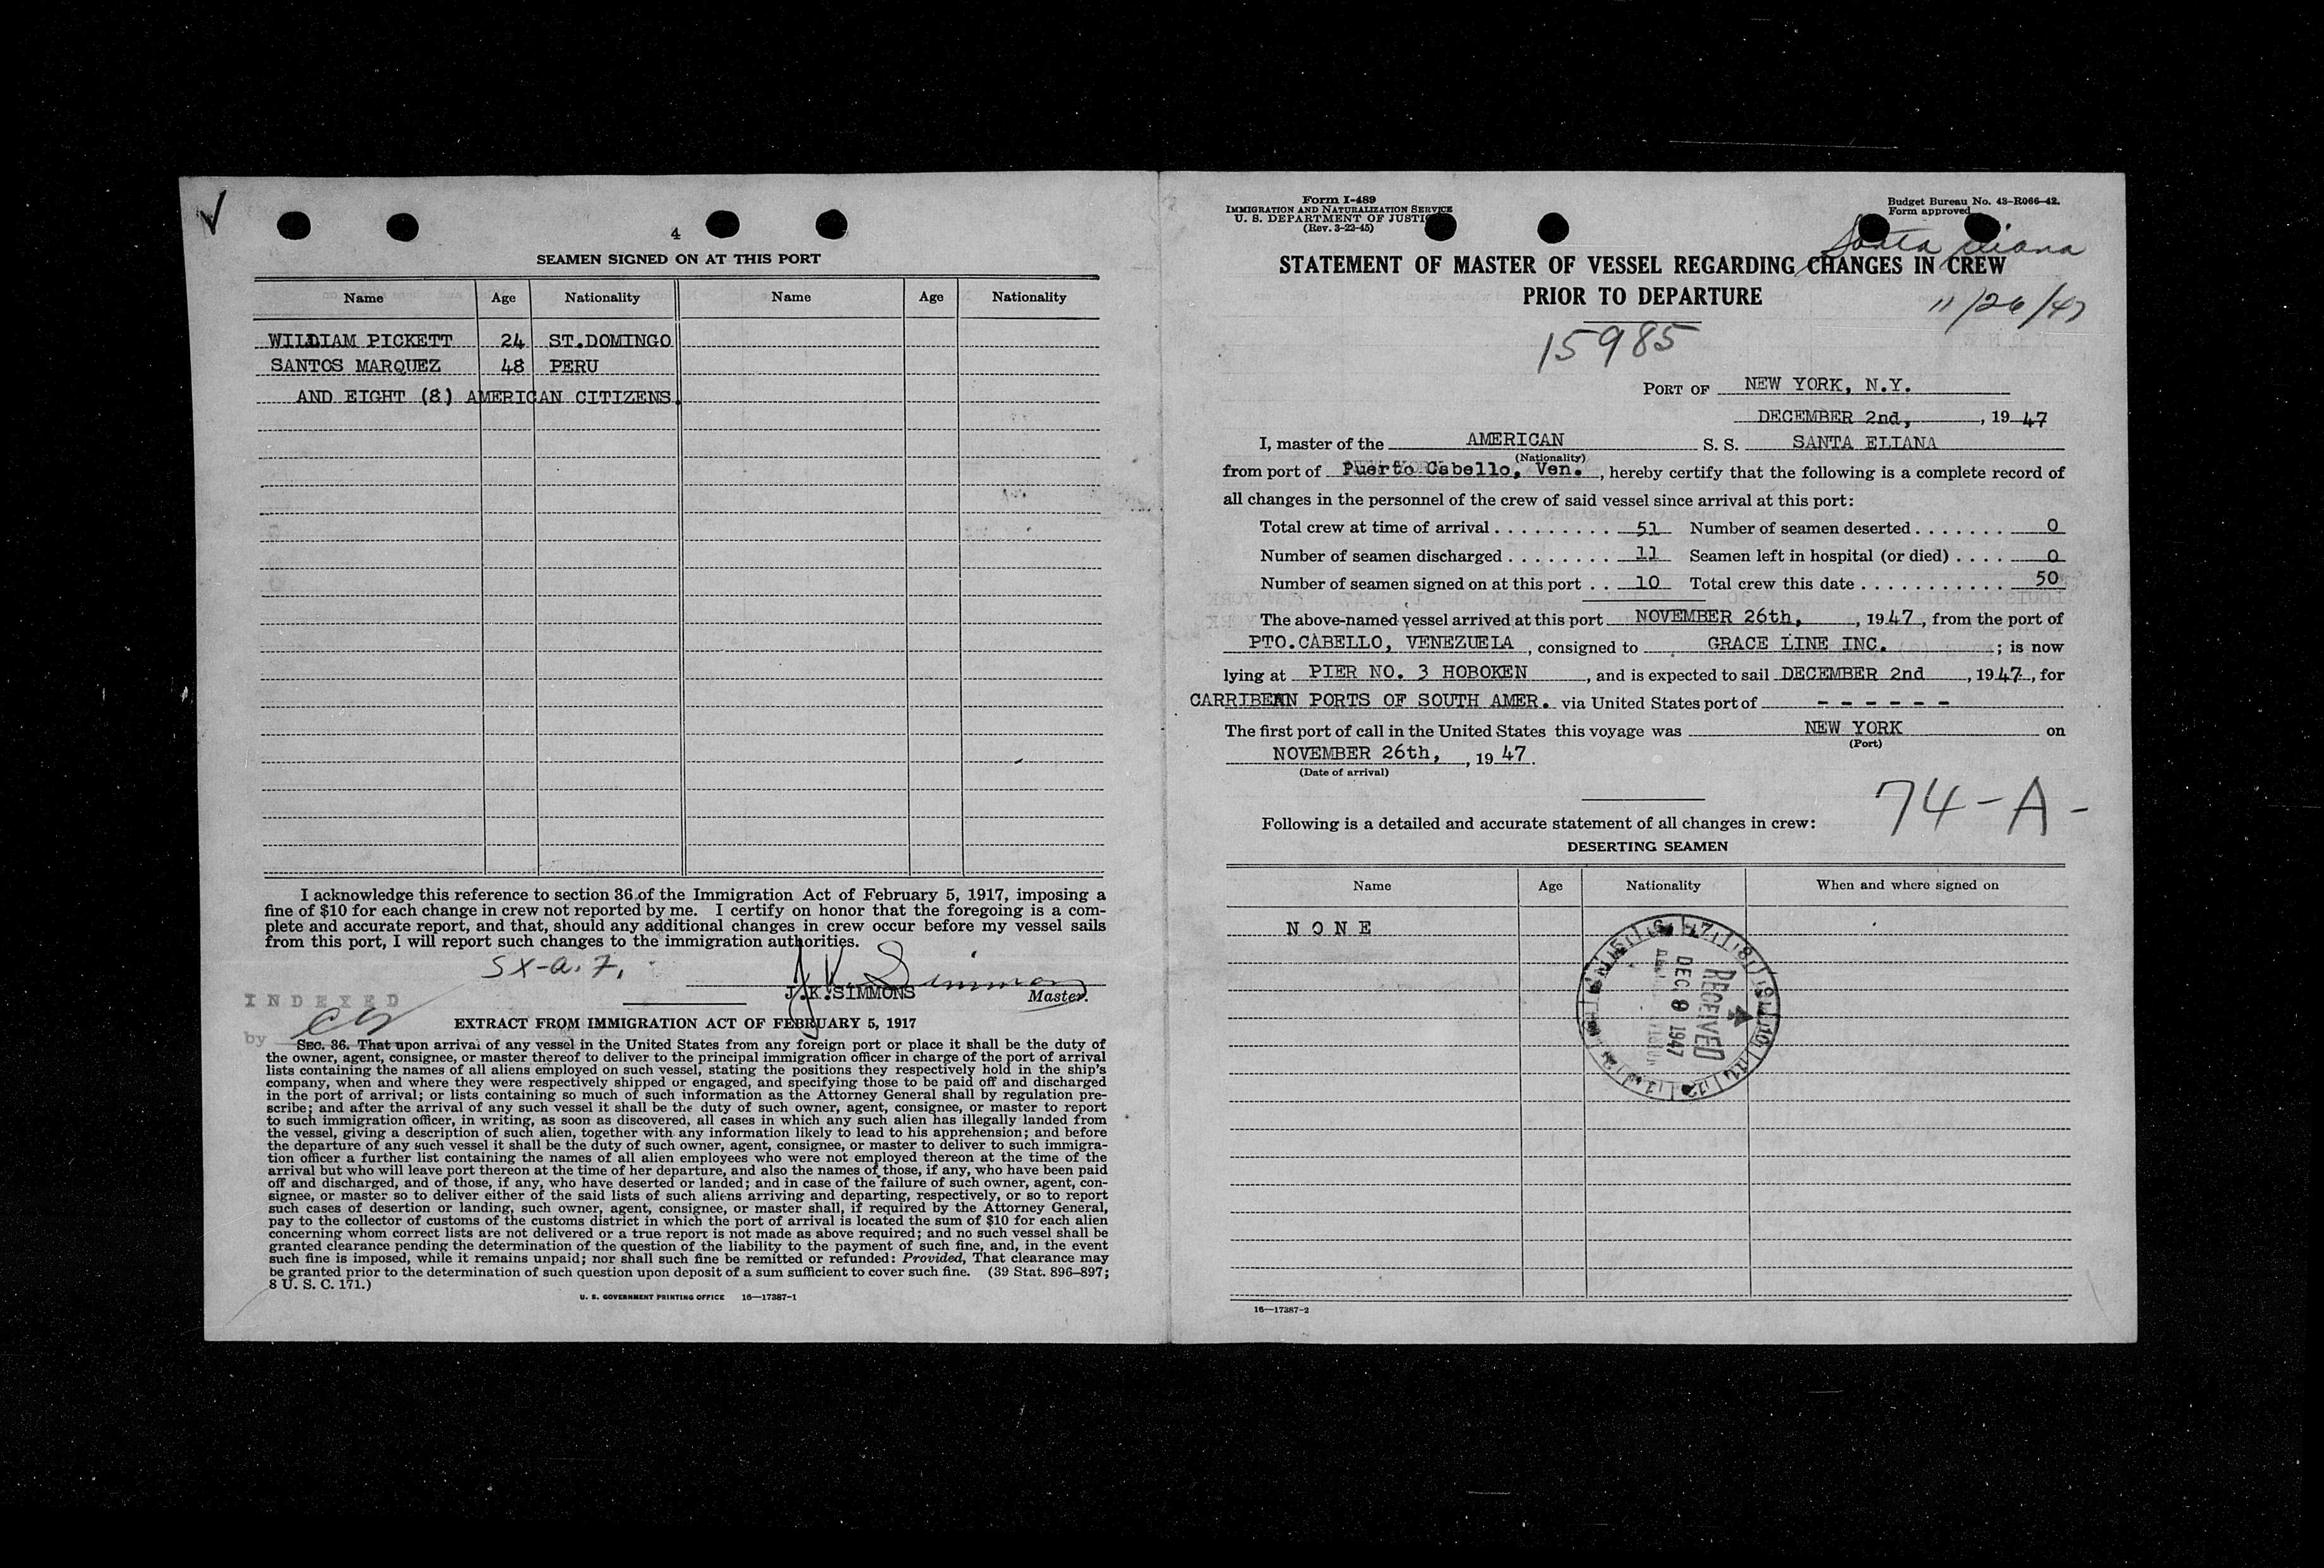 4
SEAMEN SIGNED ON AT THIS PORT
Name Age Nationality Name Age Nationality
WILLIAM PICKETT 24 ST.DOMINGO
SANTOS MARQUEZ 48 PERU
AND EIGHT (8) AMERICAN CITIZENS.
I acknowledge this reference to section 36 of the Immigration Act of February 5, 1917, imposing a
fine of $10 for each change in crew not reported by me. I certify on honor that the foregoing is a com-
plete and accurate report, and that, should any additional changes in crew occur before my vessel sails
from this port, I will report such changes to the immigration authorities.
J.K. Simmons
J.K.SIMMONS Master.
INDEXED
by
EXTRACT FROM IMMIGRATION ACT OF FEBRUARY 5, 1917
SEC. 36. That upon arrival of any vessel in the United States from any foreign port or place it shall be the duty of
the owner, agent, consignee, or master thereof to deliver to the principal immigration officer in charge of the port of arrival
lists containing the names of all aliens employed on such vessel, stating the positions they respectively hold in the ship's
company, when and where they were respectively shipped or engaged, and specifying those to be paid off and discharged
in the port of arrival; or lists containing so much of such information as the Attorney General shall by regulation pre-
scribe; and after the arrival of any such vessel it shall be the duty of such owner, agent, consignee, or master to report
to such immigration officer, in writing, as soon as discovered, all cases in which any such alien has illegally landed from
the vessel, giving a description of such alien, together with any information likely to lead to his apprehension; and before
the departure of any such vessel it shall be the duty of such owner, agent, consignee, or master to deliver to such immigra-
tion officer a further list containing the names of all alien employees who were not employed thereon at the time of the
arrival but who will leave port thereon at the time of her departure, and also the names of those, if any, who have been paid
off and discharged, and of those, if any, who have deserted or landed; and in case of the failure of such owner, agent, con-
signee, or master so to deliver either of the said lists of such aliens arriving and departing, respectively, or so to report
such cases of desertion or landing, such owner, agent, consignee, or master shall, if required by the Attorney General,
pay to the collector of customs of the customs district in which the port of arrival is located the sum of $10 for each alien
concerning whom correct lists are not delivered or a true report is not made as above required; and no such vessel shall be
granted clearance pending the determination of the question of the liability to the payment of such fine, and, in the event
such fine is imposed, while it remains unpaid; nor shall such fine be remitted or refunded: Provided, That clearance may
be granted prior to the determination of such question upon deposit of a sum sufficient to cover such fine. (39 Stat. 896–897;
8 U. S. C. 171.)
U. S. GOVERNMENT PRINTING OFFICE 16—17387-1
Form I-489
IMMIGRATION AND NATURALIZATION SERVICE
U. S. DEPARTMENT OF JUSTIC
(Rev. 3-22-45)
Budget Bureau No. 43-R066-42.
Form approved
Santa Eliana
STATEMENT OF MASTER OF VESSEL REGARDING CHANGES IN CREW
PRIOR TO DEPARTURE
11/26/47
15985
PORT OF NEW YORK, N.Y.
DECEMBER 2nd, , 19 47
I, master of the AMERICAN S. S. SANTA ELIANA
(Nationality)
from port of Puerto Cabello, Ven. , hereby certify that the following is a complete record of
all changes in the personnel of the crew of said vessel since arrival at this port:
Total crew at time of arrival . . . . . . . . . . 51 Number of seamen deserted . . . . . . . 0
Number of seamen discharged . . . . . . . . 11 Seamen left in hospital (or died) . . . . 0
Number of seamen signed on at this port . . 10 Total crew this date . . . . . . . . . . . . 50
The above-named vessel arrived at this port NOVEMBER 26th, , 19 47 , from the port of
PTO.CABELLO, VENEZUELA , consigned to GRACE LINE INC. ; is now
lying at PIER NO. 3 HOBOKEN , and is expected to sail DECEMBER 2nd , 19 47 , for
CARRIBEAN PORTS OF SOUTH AMER. via United States port of - - - - - -
The first port of call in the United States this voyage was NEW YORK on
(Port)
NOVEMBER 26th, , 19 47.
(Date of arrival)
74-A-
Following is a detailed and accurate statement of all changes in crew:
DESERTING SEAMEN
Name Age Nationality When and where signed on
NONE
RECEIVED
DEC 9 1947
16—17387-2